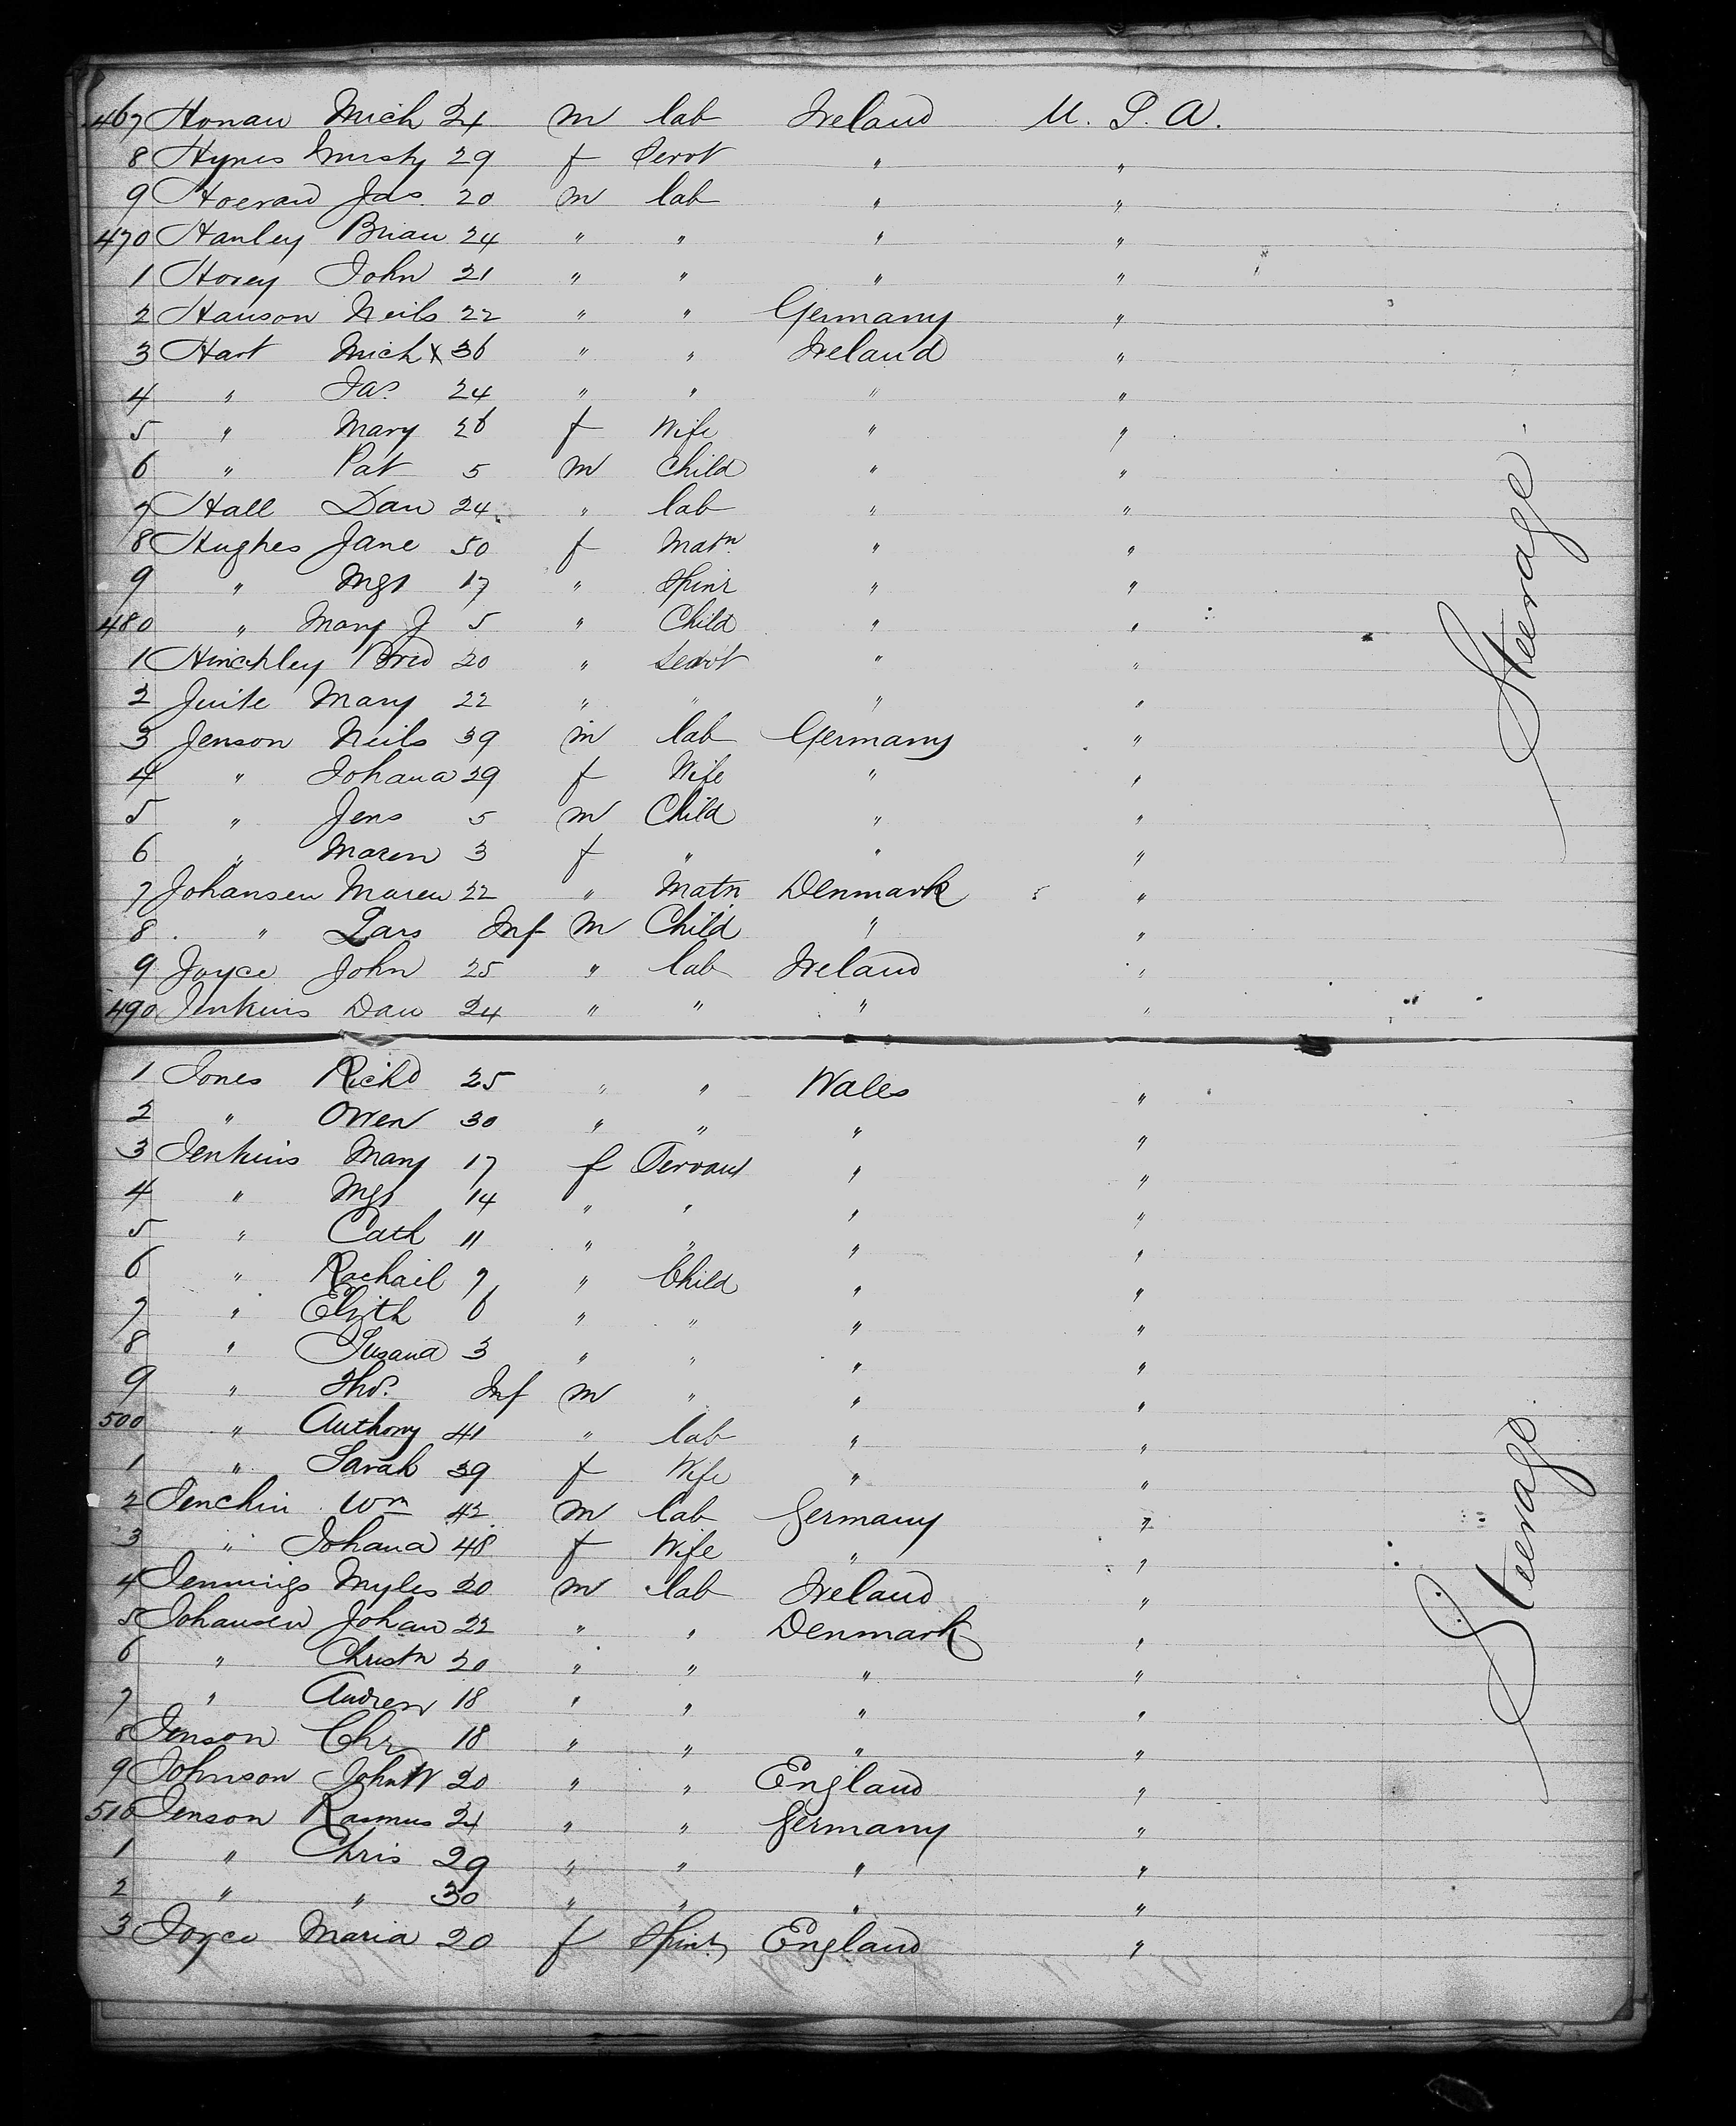 467 Honan Mich 24 m lab Ireland U. S. A.
8 Hynes 29 f Servt " "
9 Jas. 20 m lab " "
470 Hanley Brian 24 " " " "
1 Hovey John 21 " " " "
2 Hanson Neils 22 " " Germany "
3 Hart Mich x 36 " " Ireland "
4 " Jas 24 " " " "
5 " Mary 26 f Wife " "
6 " Pat 5 m Child " "
7 Hall Dan 24. " lab " "
8 Hughes Jane 50 f Matn " "
9 " Mgt 17 " Spinr " "
480 " Mary J 5 " Child " "
1 Hinchley Brid 20 " Servt " "
2 Juite Mary 22 " " " "
3 Jenson Neils 39 m lab Germany "
4 " Johana 29 f Wife " "
5 " Jens 5 m Child " "
6 " Maren 3 f " " "
7 Johansen Maren 22 " Matn Denmark "
8 " Lars Inf m Child " "
9 Joyce John 25 " lab Ireland "
490 Jenkins Dan 24 " " " "
Steerage
1 Jones Richd 25 " " Wales "
2 " Owen 30 " " " "
3 Jenkins Mary 17 f Servant " "
4 " Mgt 14 " " " "
5 " Cath 11 " " " "
6 " Rachail 7 " Child " "
7 " Elizth 6 " " " "
8 " Susana 3 " " " "
9 " Thos. Inf m " " "
500 " Anthony 41 " lab " "
1 " Sarah 39 f Wife " "
2 Jenchin Wm 42 m lab Germany "
3 " Johana 48 f Wife " "
4 Jennings Myles 20 m lab Ireland "
5 Johansen Johan 22 " " Denmark "
6 " Christn 20 " " " "
7 " Andrew 18 " " " "
8 Jenson Chr 18 " " " "
9 Johnson John W 20 " " England "
510 Jenson Rasmus 24 " " Germany "
1 " Chris 29 " " " "
2 " " 30 " " " "
3 Joyce Maria 20 f Spinr England "
Steerage